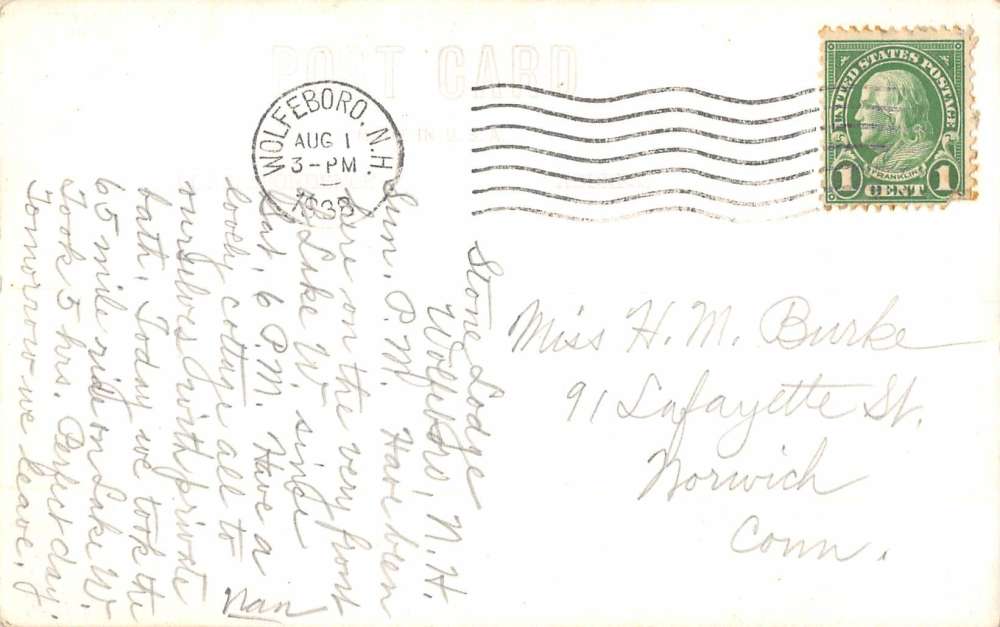 POST CARD
WOLFEBORO, N.H.
AUG 1
3-PM
UNITED STATES POSTAGE
FRANKLIN
1 CENT 1
Stone Lodge
Wolfeboro, N.H.
Sun. P.M. Have been
here on the very front
of Lake W. since
Sat. 6 P.M. Have a
lovely cottage all to
ourselves with private
bath. Today we took the
65 mile ride on Lake W.
Took 5 hrs. Perfect day.
Tomorrow we leave.
Nan
Miss H. M. Burke
91 Lafayette St.
Norwich
Conn.